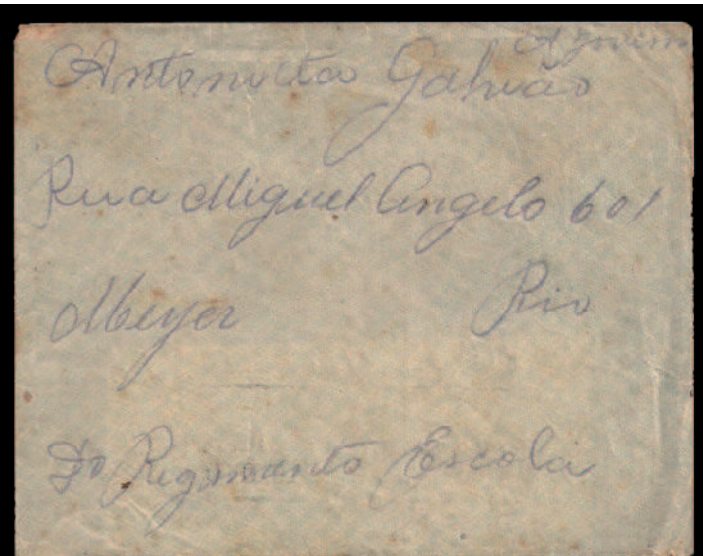 A jovem
Antonieta Galvão
Rua Miguel Angelo 601
Meyer Rio
Do Regimento Escola